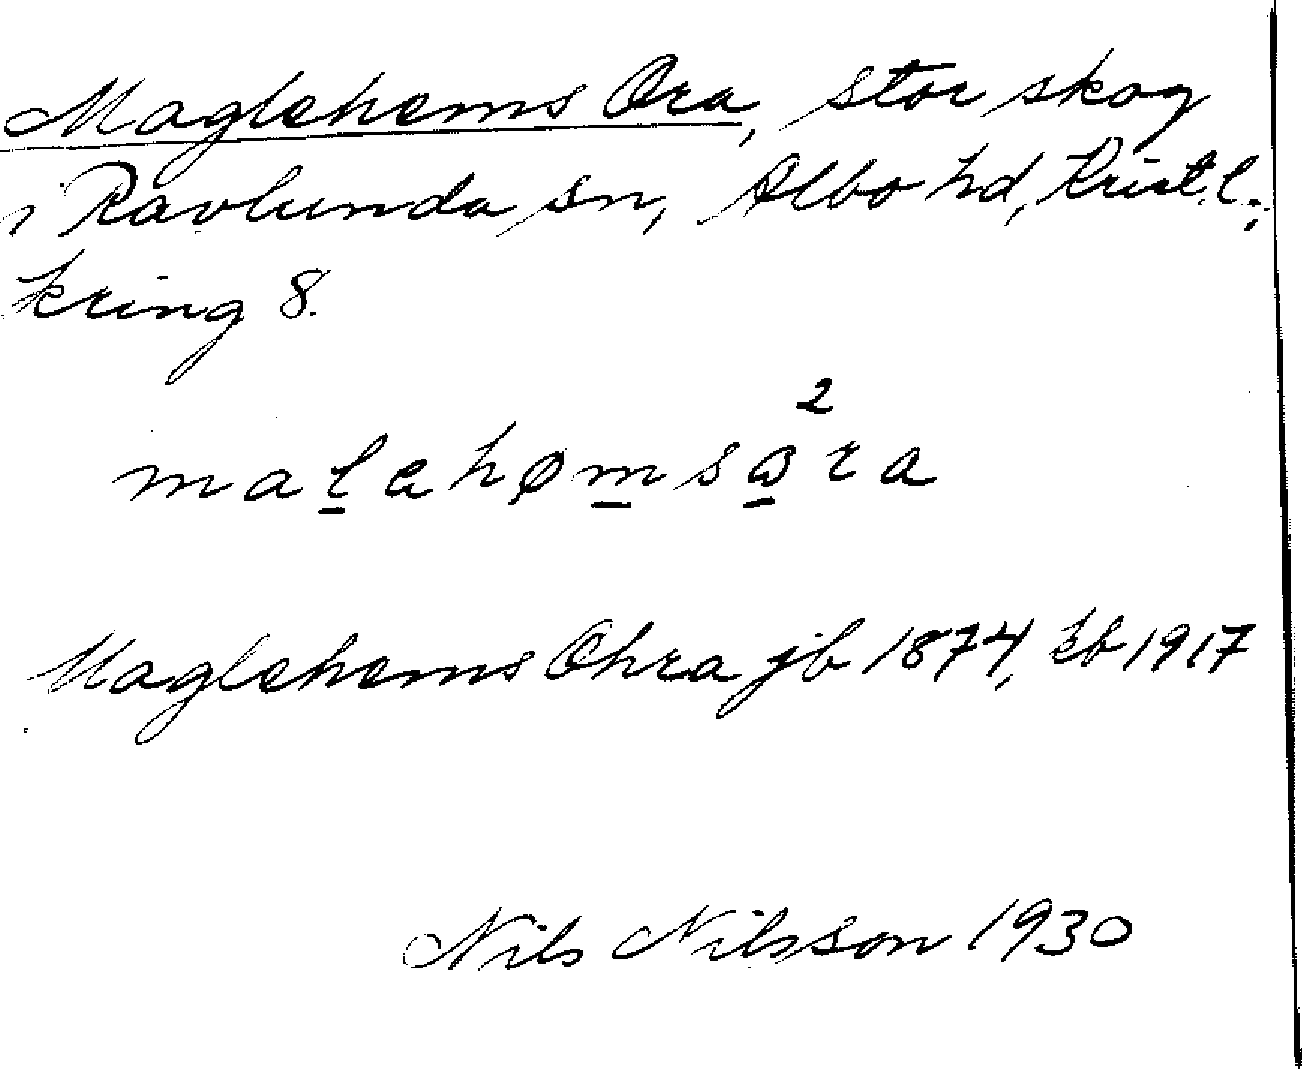 Maglehems Ora, stor skog
i Ravlunda sn, Albo hd, Krist.l.;
kring 8.
2
malahømsɷra
Maglehems Ohra jb 1874, kb 1917
Nils Nilsson 1930